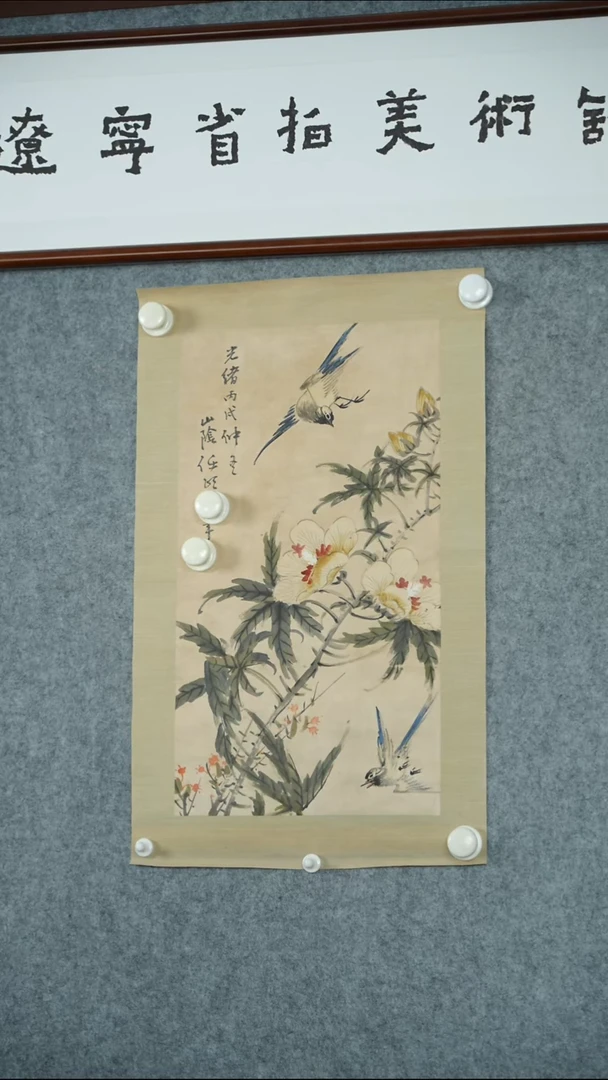 遼寧省拍美術
光緒丙戌仲
山陰任頤
年